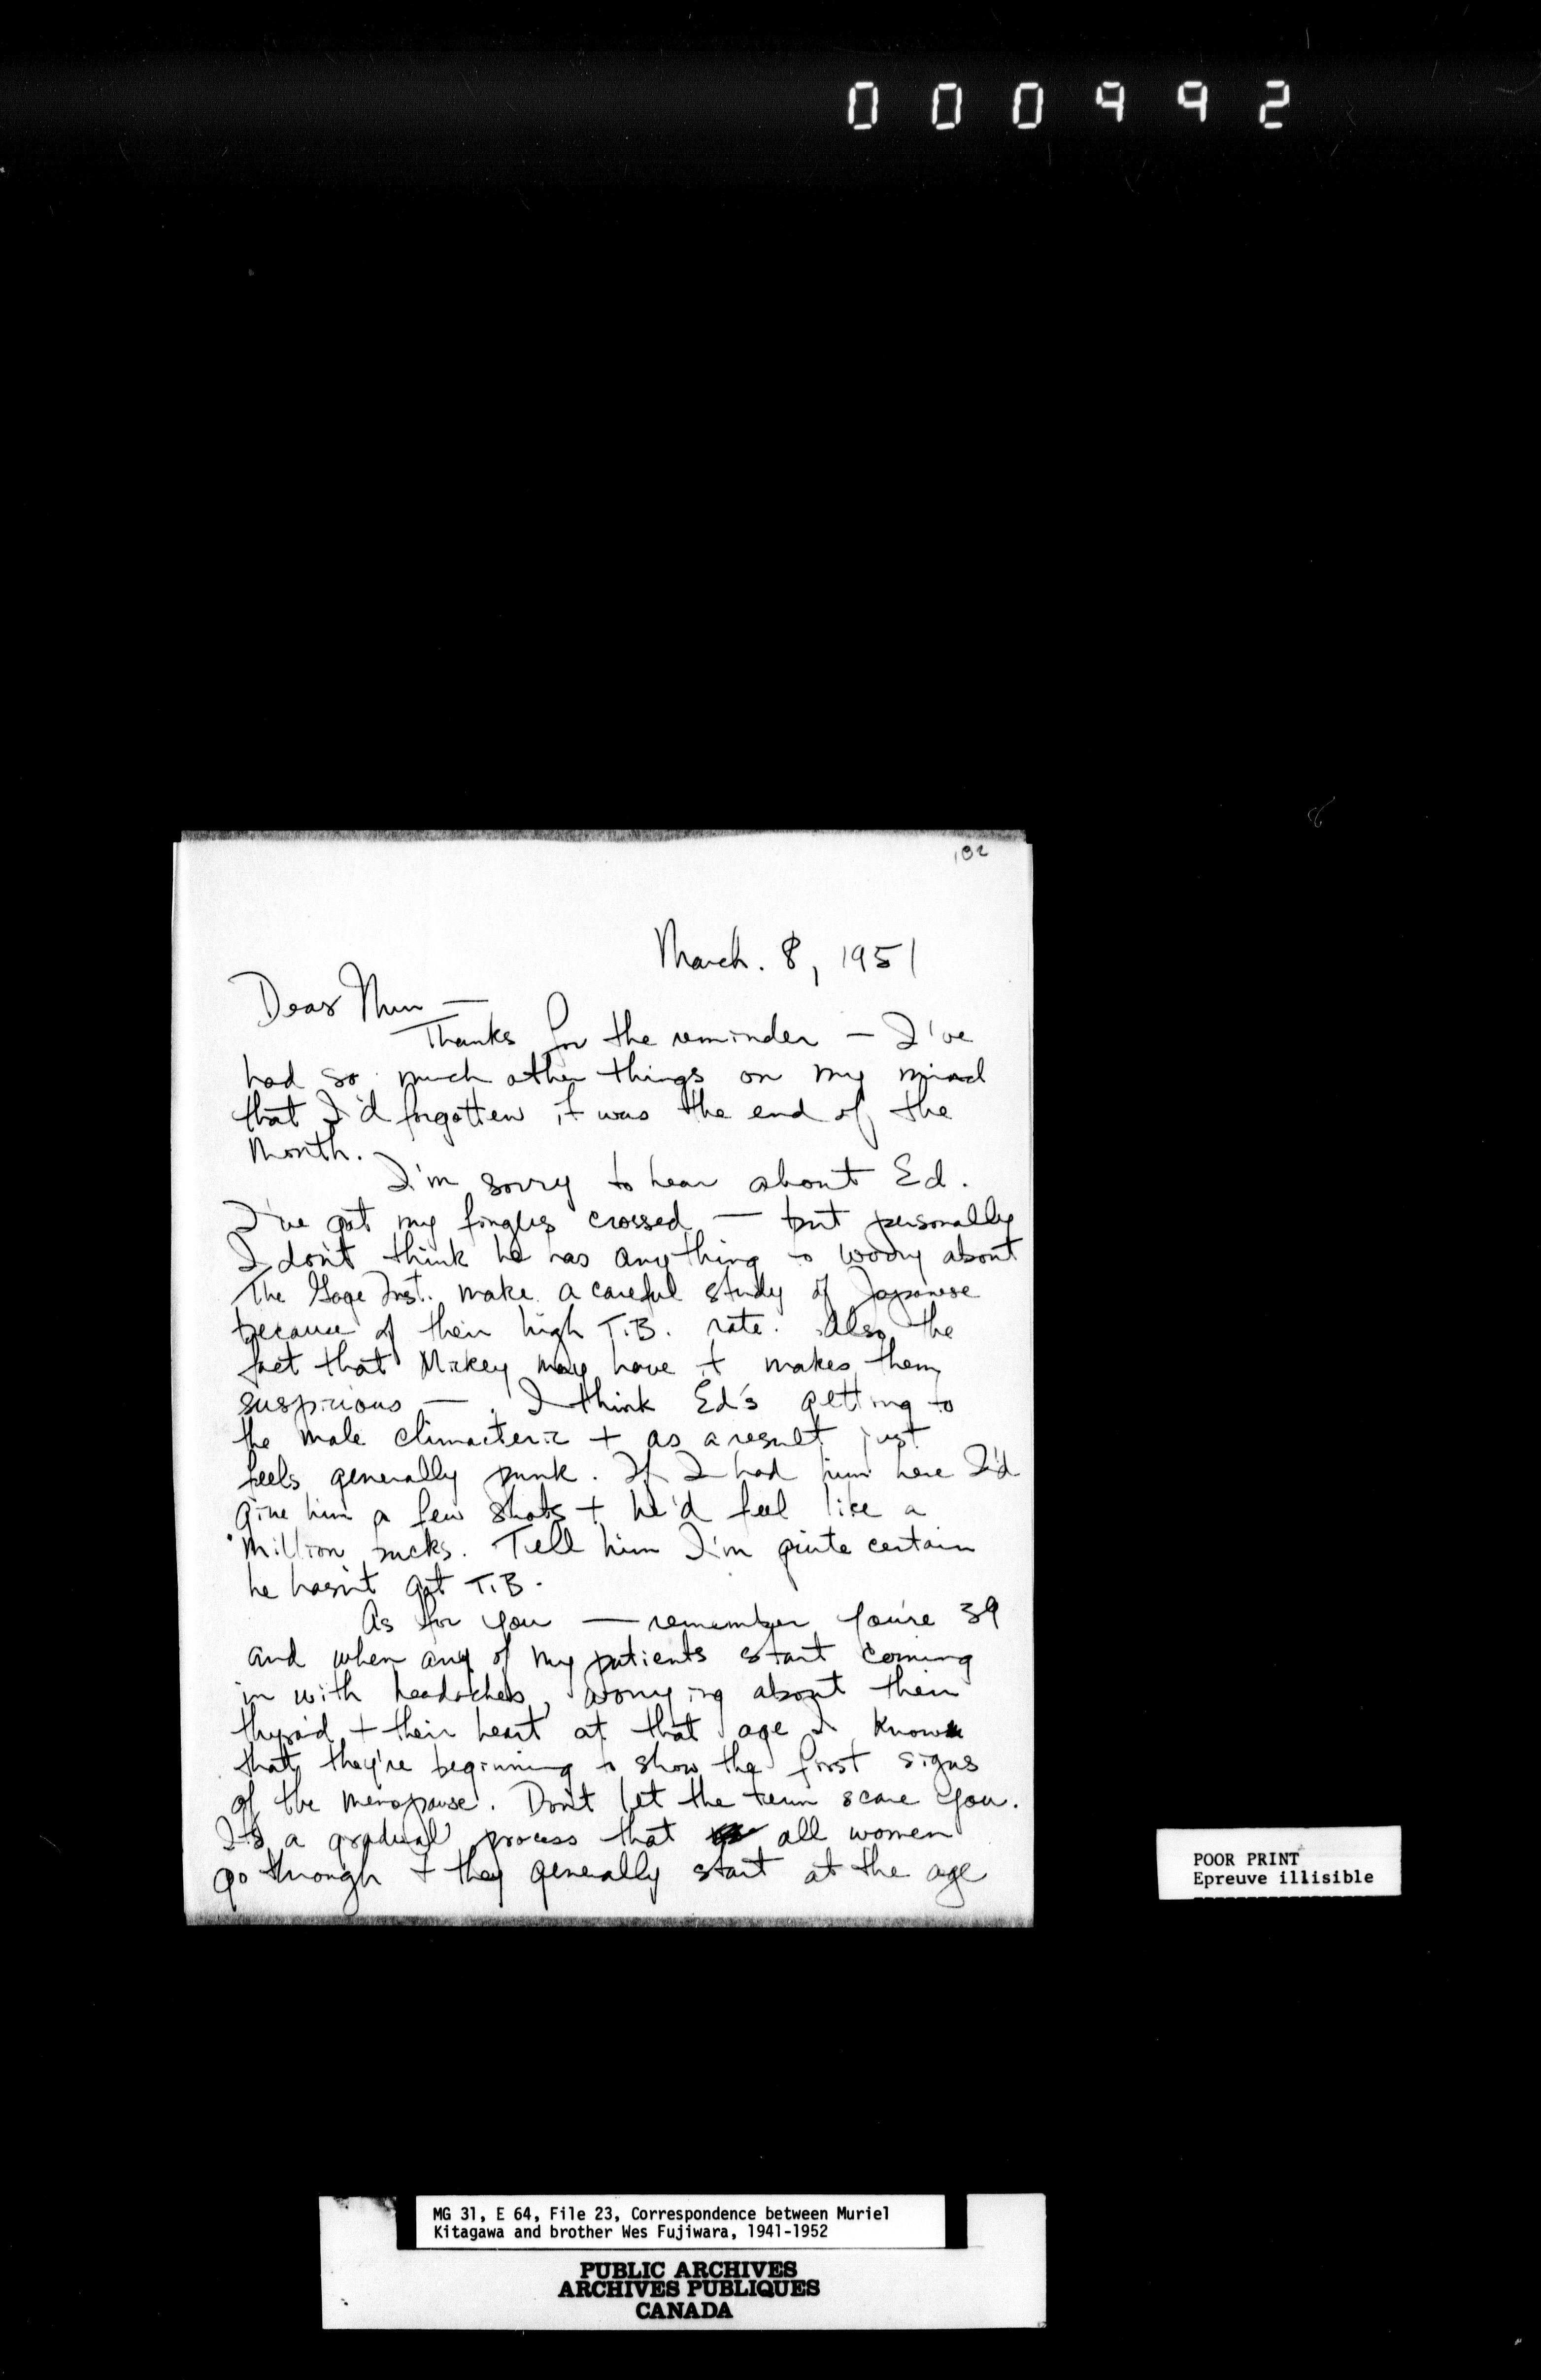 000992
102
March. 8, 1951
Dear Mur —
Thanks for the reminder — I've
had so much other things on my mind
that I'd forgotten it was the end of the
month.
I'm sorry to hear about Ed.
I've got my fingers crossed — but personally
I don't think he has anything to worry about
The Gage Inst. make a careful study of Japanese
because of their high T.B. rate. Also the
fact that Mickey may have it makes them
suspicious — . I think Ed's getting to
the male climacteric + as a result just
feels generally punk. If I had him here I'd
give him a few shots + he'd feel like a
million bucks. Tell him I'm quite certain
he hasn't got T.B.
As for you — remember you're 39
and when any of my patients start coming
in with headaches, worrying about their
thyroid + their heart at that age I know
that they're beginning to show the first signs
of the menopause. Don't let the term scare you.
It's a gradual process that all women
go through + they generally start at the age
POOR PRINT
Epreuve illisible
MG 31, E 64, File 23, Correspondence between Muriel
Kitagawa and brother Wes Fujiwara, 1941-1952
PUBLIC ARCHIVES
ARCHIVES PUBLIQUES
CANADA